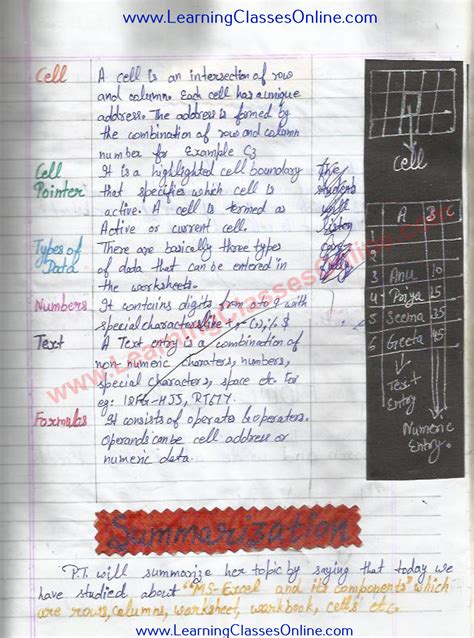 www.LearningClassesOnline.com
Cell
A cell is an intersection of row
and column. Each cell has a unique
address. The address is formed by
the combination of row and column
number for Example C3
Cell
Pointer
It is a highlighted cell boundary
that specifies which cell is
active. A cell is termed as
Active or current cell.
Types of
Data
There are basically three types
of data that can be entered in
the worksheets.
Numbers
It contains digits from 0 to 9 with
special characters like + -
Text
A Text entry is a combination of
non-numeric charaters, numbers,
special characters, space etc. for
eg:- HJ5, RT677.
Formulas
It consists of operate & operators.
Operands can be cell address or
numeric data.
The
students
will
listen
Cell
A B C
1
2
3 Anu 10
4 Priya 25
5 Seema 35
6 Geeta 45
Text
Entry
Numeric
Entry.
www.LearningClassesOnline.com
Summarization
P.T. will summarize her topic by saying that today we
have studied about "MS-Excel and its components" which
are rows, columns, worksheet, workbook, cells etc.
www.LearningClassesOnline.com